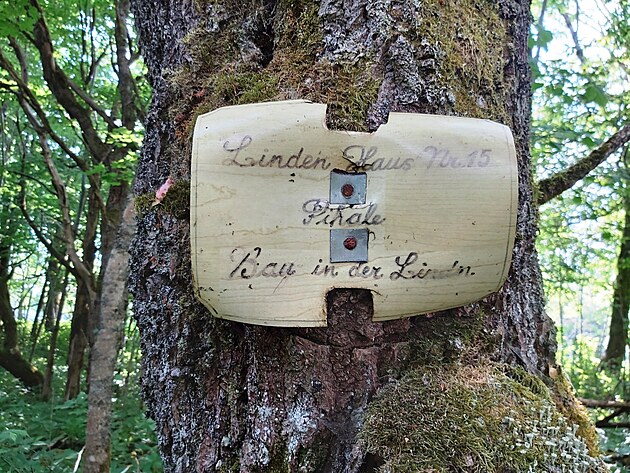 Linden Haus Nr. 15
Pikale
Bau in der Lindn.